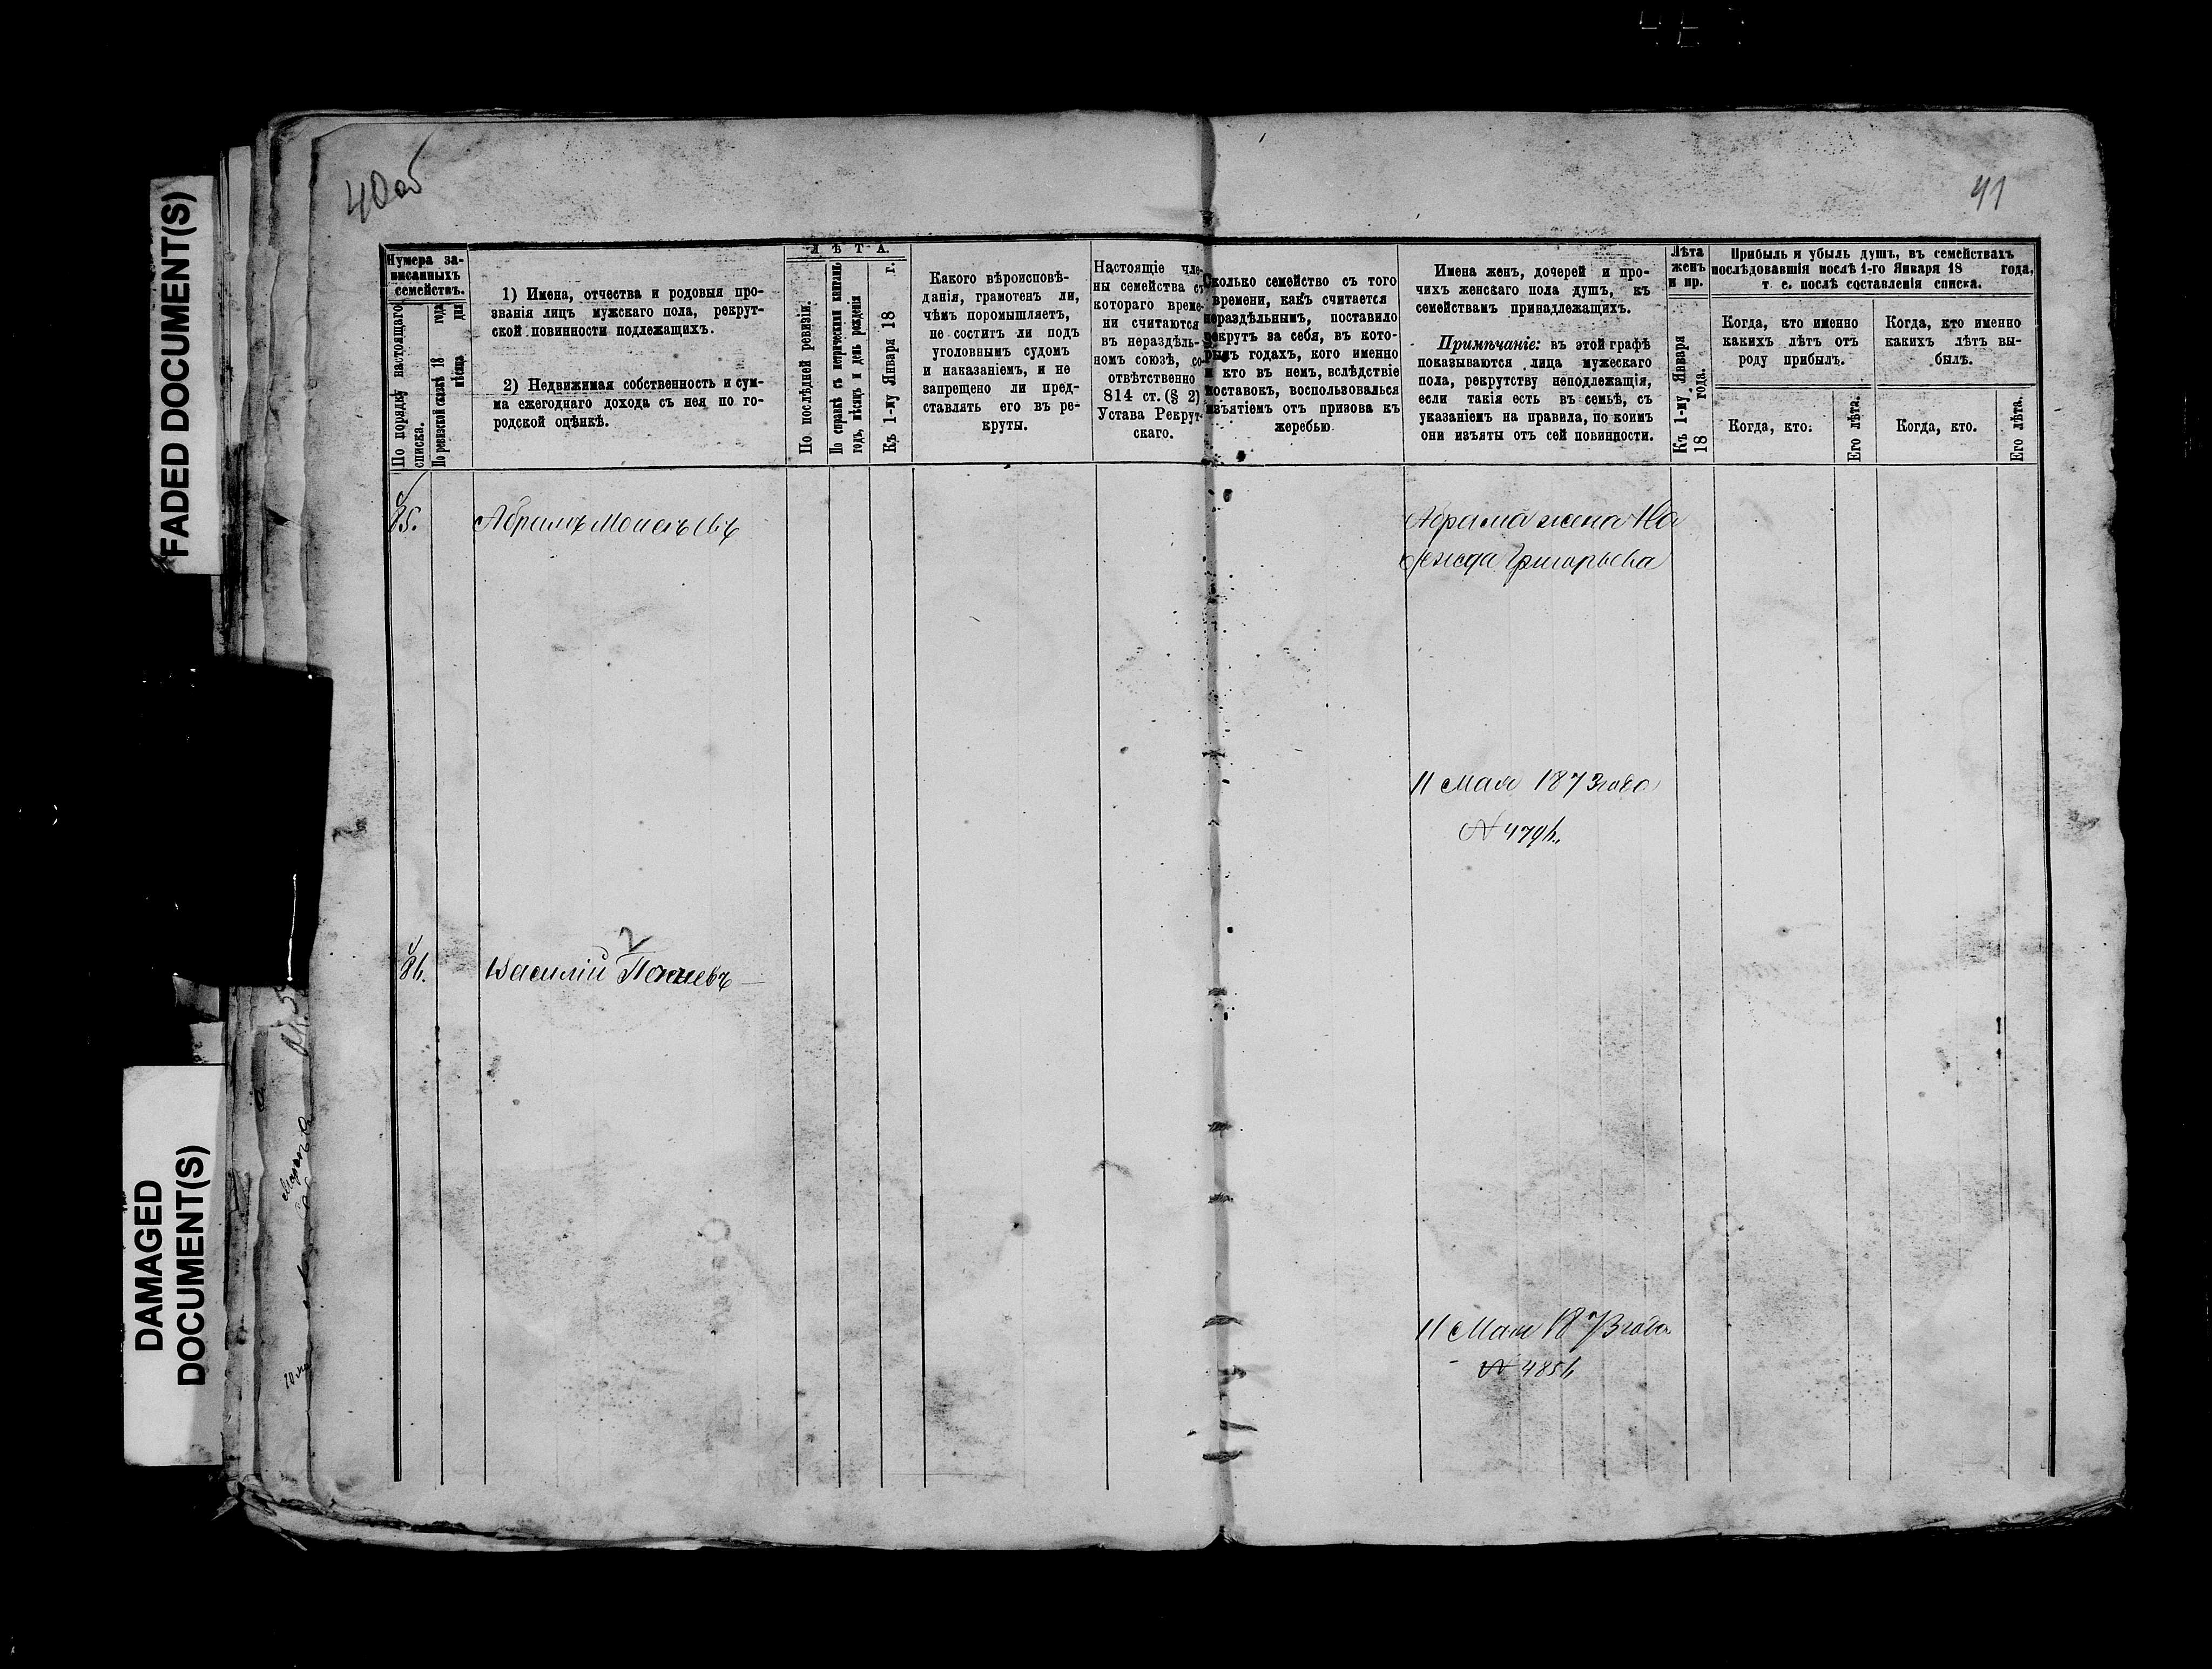 FADED DOCUMENT(S)
DAMAGED
DOCUMENT(S)
40об
41
Нумера за-
писанныхъ
семействъ.
По порядку настоящаго
списка.
По ревизской сказкѣ 18 года
мѣсяца дня
1) Имена, отчества и родовыя про-
званія лицъ мужскаго пола, рекрут-
ской повинности подлежащихъ.
2) Недвижимая собственность и сум-
ма ежегоднаго дохода съ нея по го-
родской оцѣнкѣ.
ЛѢТА.
По послѣдней ревизіи.
По справкѣ съ метрическими книгами
годъ, мѣсяцъ и день рожденія
Къ 1-му Января 18 г.
Какого вѣроисповѣ-
данія, грамотенъ ли,
чѣмъ поромышляетъ,
не соститъ ли подъ
уголовнымъ судомъ
и наказаніемъ, и не
запрещено ли пред-
ставлять его въ ре-
круты.
Настоящіе чле-
ны семейства съ
котораго време-
ни считаются
въ нераздѣль-
номъ союзѣ, со-
отвѣтственно
814 ст. (§ 2)
Устава Рекрут-
скаго.
Сколько семейство съ того
времени, какъ считается
нераздѣльнымъ, поставило
рекрутъ за себя, въ кото-
рыхъ годахъ, кого именно
и кто въ немъ, вслѣдствіе
поставокъ, воспользовалься
изъятіемъ отъ призова къ
жеребью.
Имена женъ, дочерей и про-
чихъ женскаго пола душъ, къ
семействамъ принадлежащихъ.
Примѣчаніе: въ этой графѣ
показываются лица мужескаго
пола, рекрутству неподлежащія,
если такія есть въ семьѣ, съ
указаніемъ на правила, по коимъ
они изъяты отъ сей повинности.
Лѣта
женъ
и пр.
Къ 1-му Января
18 года.
Прибыль и убыль душъ, въ семействахъ
послѣдовавшія послѣ 1-го Января 18 года,
т. е. послѣ составленія списка.
Когда, кто именно
какихъ лѣтъ отъ
роду прибылъ.
Когда, кто именно
какихъ лѣтъ вы-
былъ.
Когда, кто.
Его лѣта.
Когда, кто.
Его лѣта.
85.
Абрамъ Моисѣевъ
Абрама жена На
дежда Григорьева
11 Мая 1873 года
№ 4796.
2
86.
Василій
11 Мая 1873 года
№ 4856